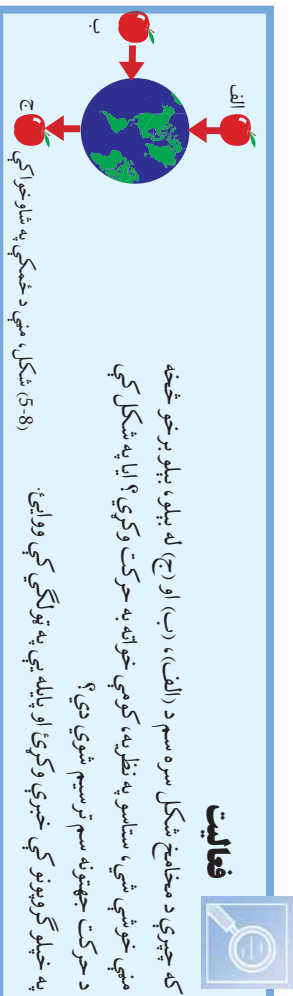 فعالیت
که چېرې د مخامخ شکل سره سم د (الف)، (ب) او (ج) له بېلو، بېلو برخو څخه
مڼې خوشې شي، ستاسو په نظریه، کومې خواته به حرکت وکړي؟ ایا په شکل کې
د حرکت جهتونه سم ترسیم شوي دي؟
په خپلو گروپونو کې خبرې وکړئ او پایله یې په ټولگي کې ووایئ.
الف
ب
ج
(5-8) شکل، مڼې د ځمکې په شاوخوا کې